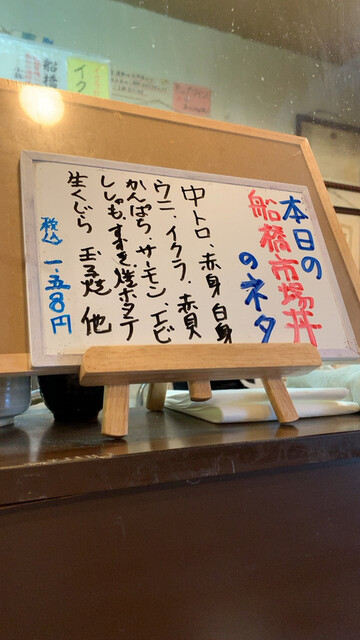 本日の
船橋市場丼
のネタ
中トロ、赤身 白身
ウニ、イクラ、赤貝
かんぱち、サーモン、エビ
ししゃも、すずき、焼ホタテ
生くじら 玉子焼 他
税込 一、五八〇円
船橋
イク